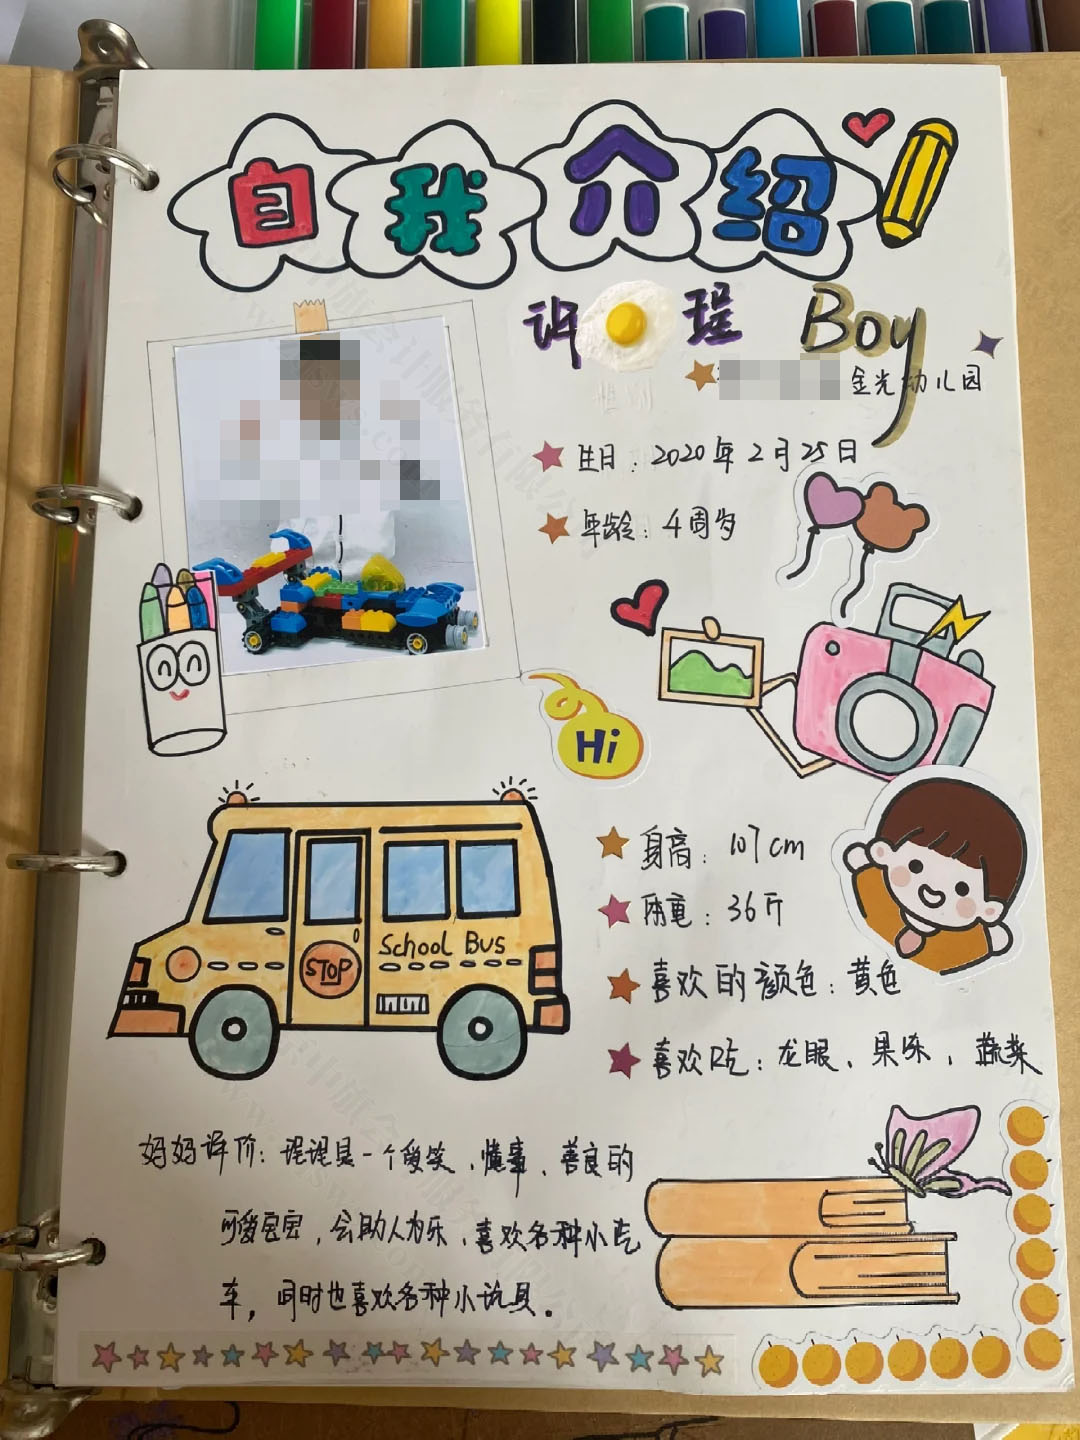 自我介绍
许 珵 Boy
金光幼儿园
生日：2020年2月25日
年龄：4周岁
Hi
身高：107cm
体重：36斤
喜欢的颜色：黄色
喜欢吃：龙眼、果冻、蔬菜
School Bus
STOP
妈妈评价：珵珵是一个爱笑、懂事、善良的
可爱宝宝，会助人为乐、喜欢各种小汽
车，同时也喜欢各种小玩具。